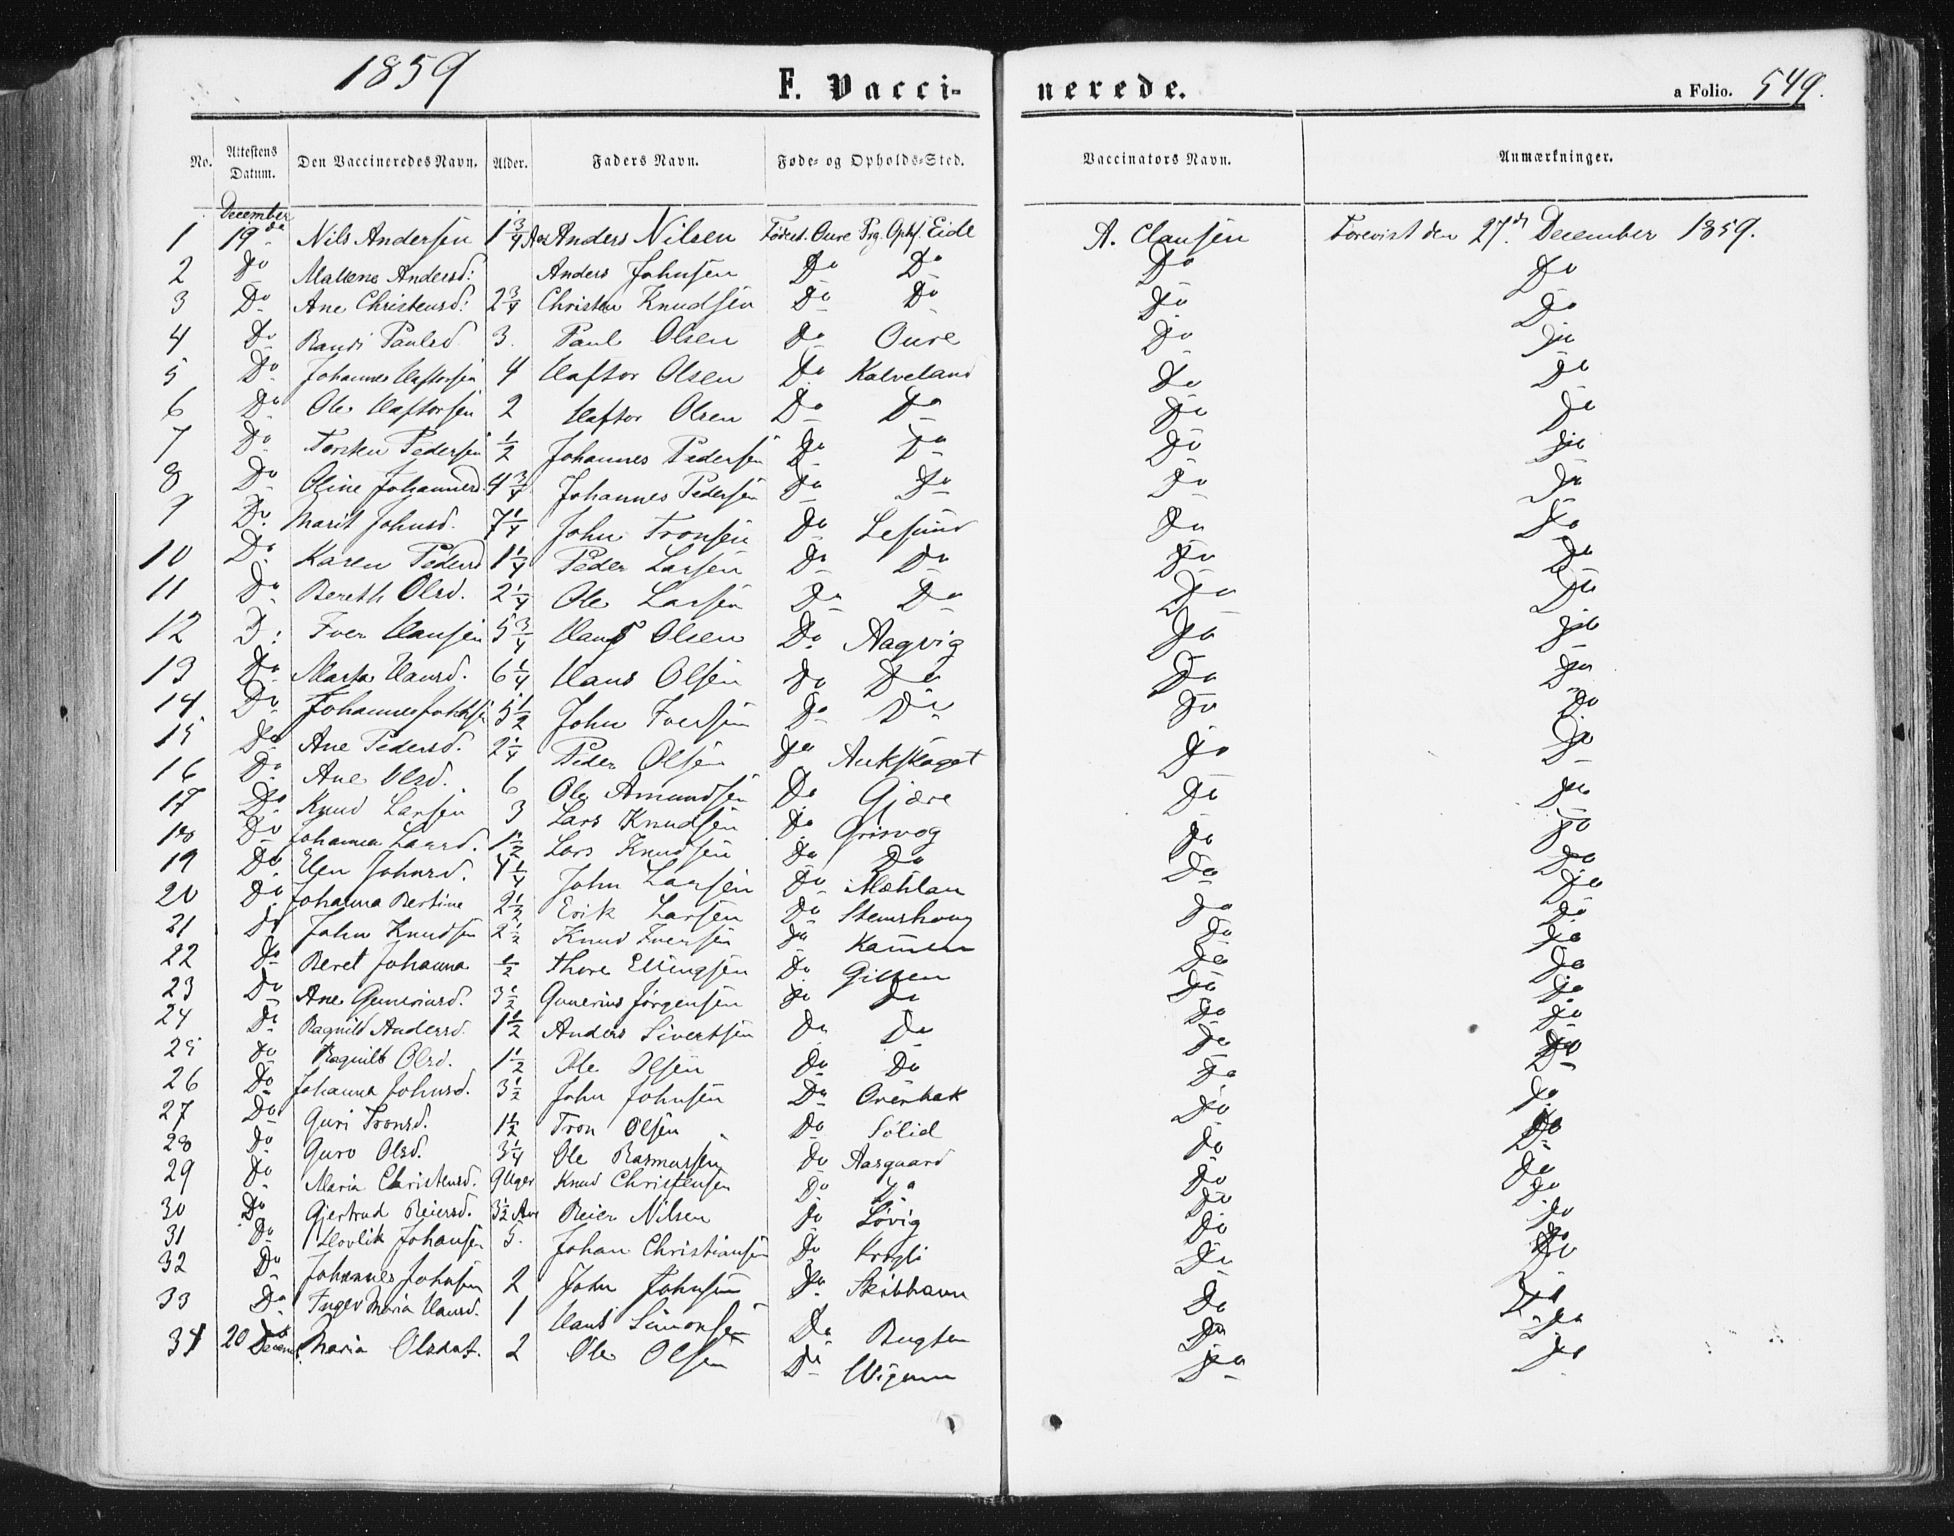 1859 F. Vacci- nerede. a Folio. 549.
No. Attestens Datum. Den Vaccineredes Navn. Alder. Faders Navn. Føde- og Opholds-Sted. Vaccinators Navn. Anmærkninger.
December
1 19de Nils Andersen 1 3/4 Aar Anders Nilsen Fødest. Oure Prg. Oph. Eide A. Clausen Forevist den 27de December 1859.
2 Do Anders Johnsen Do Do Do Do
3 Do Ane Christensd: 2 3/4 Christen Knudsen Do Do Do Do
4 Do Randi Paulsd 3. Paul Olsen Do Oure Do Do
5 Do Johannes Haftorsen 4 Haftor Olsen Do Kalveland Do Do
6 Do Ole Haftorsen 2 Haftor Olsen Do Do Do Do
7 Do Torsten Pedersen 1/2 Johannes Pedersen Do Do Do Do
8 Do Oline Johannesd. 4 3/4 Johannes Pedersen Do Do Do Do
9 Do Marit Johnsd. 7 1/4 John Tronsen Do Lesund Do Do
10 Do Karen Pedersd 1 1/4 Peder Larsen Do Do Do Do
11 Do Bereth Olsd. 2 1/4 Ole Larsen Do Do Do Do
12 D: Iver Hansen 5 3/4 Hans Olsen Do Aagvig Do Do
13 Do Marta Hansd. 6 1/4 Hans Olsen Do Do Do Do
14 Do Johannes Johnsen 5 1/2 John Iversen Do Do Do Do
15 Do Ane Pedersd. 2 1/4 Peder Olsen Do Aukskaget Do Do
16 Do Ane Olsd. 6 Ole Amundsen Do Gjære Do Do
17 Do Knud Larsen 3 Lars Knudsen Do Grisvog Do Do
18 Do Johanna Larsd. 1 1/2 Lars Knudsen Do Do Do Do
19 Do Elen Johnsd. 4 1/4 John Larsen Do Mæhlan Do Do
20 Do Johanna Bertine 2 1/2 Erik Larsen Do Stemshoug Do Do
21 Do John Knudsen 2 1/2 Knud Iversen Do Do Do
22 Do Beret Johanna 1/2 Thore Ellingsen Do Do Do
23 Do Ane Guneriusd. 3 1/2 Gunerius Jørgensen Do Do Do Do
24 Do Ragnild Andersd. 1 1/2 Anders Sivertsen Do Do Do Do
25 Do Ragnild Olsd. 1 1/2 Ole Olsen Do Do Do Do
26 Do Johanna Johnsd. 3 1/2 John Johnsen Do Overbak Do Do
27 Do Guri Tronsd. 1 1/2 Tron Olsen Do Solid Do Do
28 Do Guro Olsd. 3 1/4 Ole Rasmussen Do Aasgaard Do Do
29 Do Maria Christensd. 9 Uger Knud Christensen Do Do Do Do
30 Do Gjertrud Reiersd. 3 1/2 Aar Reier Nilsen Do Løvig Do Do
31 Do Hovlik Johansen 5. Johan Christiansen Do Krogli Do Do
32 Do Johannes Johnsen 2 John Johnsen Do Skibhavn Do Do
33 Do Inger Maria Hansd. 1 Hans Simonsen Do Do Do
34 20de Decemb. Maria Olsdat. 2 Ole Olsen Do Do Do